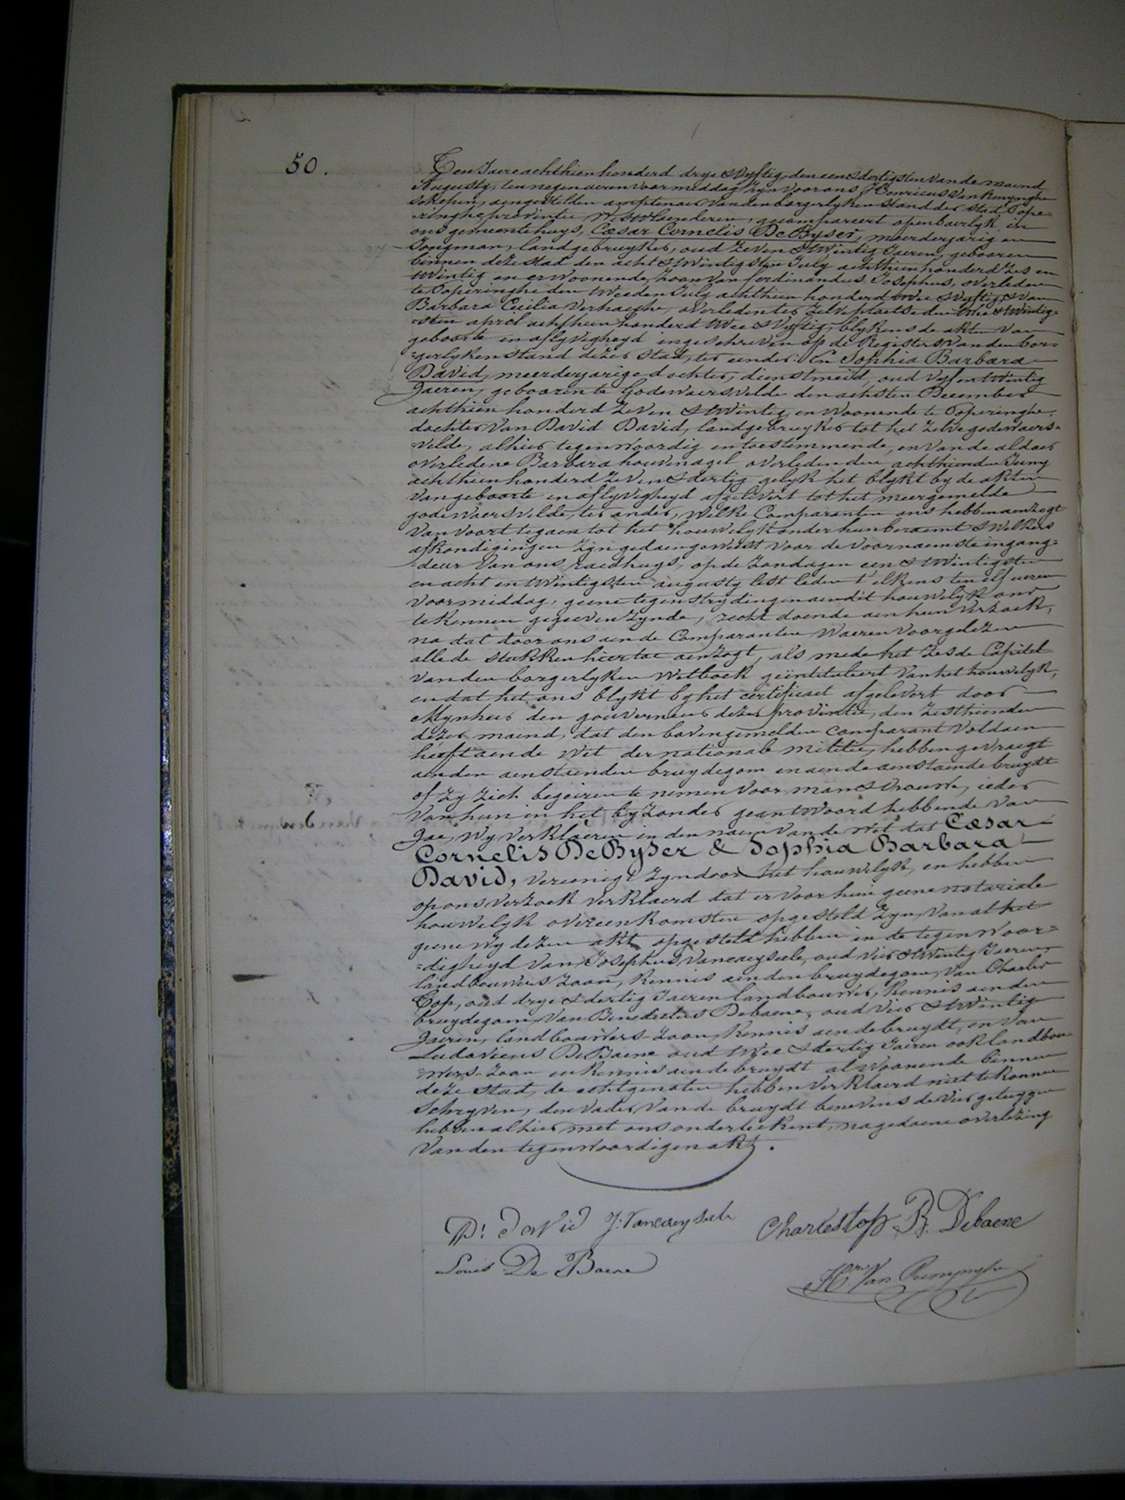 50.
Ten Jaere achthien honderd drye & vyftig, den een & dertigsten van de maend
Augusty, ten negen ueren voormiddag zyn voor ons, Henricus Van Renynghe
schepen, aengestelden amptenaer van den borgerlyken stand der stad Pope-
ringhe provintie W. Vlaenderen, gecompareert openbaerlyk in
ons gemeente huys, Cæsar Cornelis De Byser, meerderjarig en
Jongman, landgebruyker, oud zeven & twintig Jaeren, geboren
binnen deze stad den acht & twintigsten July achthien honderd zes en
twintig en er woonende, zoon van Ferdinandus Josephus, overleden
te Poperinghe den tweeden July achthien honderd twee & vyftig, & van
Barbara Cecilia Verhaeghe, overleden ter zelve plaetse den drie & twintig-
sten april achthien honderd twee & vyftig, blykens de akten van
geboorte en aflyvigheyd ingeschreven op de Registers van den bor-
gerlyken stand dezer stad, ter eender: En Sophia Barbara
David, meerderjarige dochter, dienstmeid, oud vyf en twintig
Jaeren, geboren te Godewaersvelde den achsten December
achthien honderd zeven & twintig, en woonende te Poperinghe,
dochter van David David, landgebruyker tot het zelve godewaers-
velde, alhier tegenwoordig en toestemmende, en van de aldaer
overledene Barbara houvenagel overleden den achthienden Juny
achthien honderd zeven & dertig gelyk het blykt by de akten
van geboorte en aflyvigheyd afgelevert tot het meergemelde
godewaersvelde, ter ander, Welke Comparanten ons hebben aenzogt
van voort te gaen tot het houwelyk onder hun beraemt & Welkers
afkondigingen zyn gedaen geweest voor de voornaemste ingang-
deur van ons raedhuys, op de zondagen een & twintigsten
en acht en twintigsten augusty lest leden telkens ten elf ueren
voormiddag, geene tegenstrydingen aen dit houwelyk ons
te kennen gegeven zynde, recht doende aen hun verzoek,
na dat door ons aen de Comparanten waeren voorgelezen
alle de stukken hier toe aenzogt, als mede het zesde Capitel
van den borgerlyken Wetboek geïntituleert van het houwelyk,
en dat het ons blykt by het certificaet afgelevert door
Mynheer den gouverneur dezer provintie, den zesthienden
dezer maend, dat den bovengemelden comparant voldaen
heeft aen de Wet der nationale militie, hebben gevraegt
aen den aenstaenden bruydegom en aen de aenstaende bruydt
of zy zich begeiren te nemen voor man & vrouw, ieder
van hun in het byzonder geantwoord hebbende van
Jae, Wy verklaeren in den naem van de Wet dat Cæsar
Cornelis De Byser & Sophia Barbara
David, vereenigt zyn door het houwelyk, en hebben
op ons verzoek verklaerd dat er voor hun geene notariale
houwelyk overeenkomsten opgesteld zyn, van al het
geene wy dezen akt opgesteld hebben in de tegenwoor-
digheyd van Josephus Vancayseele, oud vier & twintig Jaeren
landbouwers zoon, Kennis aen den bruydegom, van Charles
Top, oud drye & dertig Jaeren landbouwer, Kennis aen den
bruydegom, van Benedictus Debaene, oud vier & twintig
Jaeren, landbouwers zoon, Kennis aen de bruydt, en van
Ludovicus De Baene oud twee & dertig Jaeren ook landbou-
wers zoon en Kennis aen de bruydt al woonende binnen
deze stad, de echtgenoten hebben verklaerd niet te konnen
schryven, den vader van de bruydt benevens de vier getuygen
hebben alhier met ons onderteekent, na gedaene overlezing
van den tegenwoordigen akt.
David J: Vancayseele Charles top B. Debaene
Louis De Baene
Hri Van Renynghe